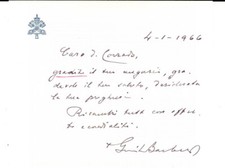 4-1-1966
Caro D. Corrado,
gradito il tuo augurio, gra-
il tuo saluto,
la tua preghiera.
Ricambi tutti con affet-
to e cordialità.